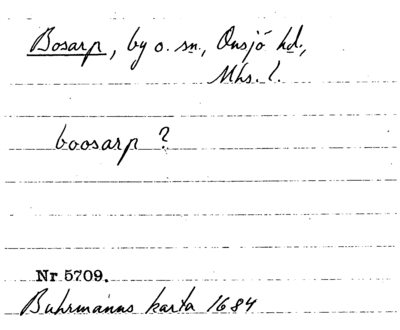 Bosarp, by o. sn., Onsjö hd.,
Mhs. l.
boosarp ?
Nr 5709.
Buhrmanns karta 1684